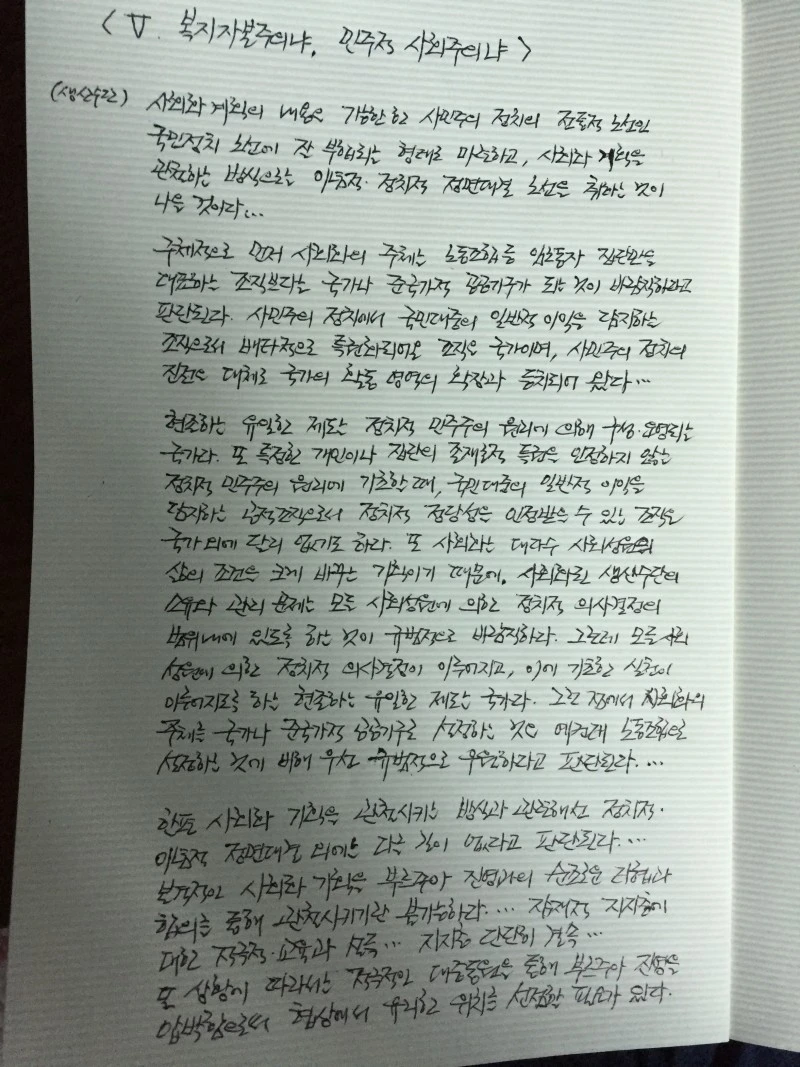 < Ⅴ. 복지자본주의냐, 민주적 사회주의냐 >
(생산수단) 사회화 계획의 내용은 가능한 한 사민주의 정치의 전통적 노선인
국민정치 노선에 잘 부합되는 형태로 마련하고, 사회화 계획을
관철하는 방식으로는 이념적·정치적 정면대결 노선을 취하는 것이
나을 것이다...
구체적으로 먼저 사회화의 주체는 노동조합 등 임노동자 집단만을
대표하는 조직보다는 국가나 준국가적 공공기구가 되는 것이 바람직하다고
판단된다. 사민주의 정치에서 국민대중의 일반적 이익을 담지하는
조직으로서 배타적으로 특권화되어온 조직은 국가이며, 사민주의 정치의
진전은 대체로 국가의 활동 영역의 확장과 등치되어 왔다...
현존하는 유일한 제도는 정치적 민주주의 원리에 의해 구성·운영되는
국가다. 또 특정한 개인이나 집단의 존재론적 특권을 인정하지 않는
정치적 민주주의 원리에 기초할 때, 국민대중의 일반적 이익을
담지하는 공적조직으로서 정치적 정당성을 인정받을 수 있는 조직은
국가 외에 달리 없기도 하다. 또 사회화는 대다수 사회성원의
삶의 조건을 크게 바꾸는 기획이기 때문에, 사회화된 생산수단의
소유와 관리 문제는 모든 사회성원에 의한 정치적 의사결정의
범위 내에 있도록 하는 것이 규범적으로 바람직하다. 그런데 모든 사회
성원에 의한 정치적 의사결정이 이루어지고, 이에 기초한 실천이
이루어지도록 하는 현존하는 유일한 제도는 국가다. 그런 점에서 사회화의
주체를 국가나 준국가적 공공기구로 설정하는 것은 예컨대 노동조합으로
설정하는 것에 비해 우선 규범적으로 우월하다고 판단된다....
한편 사회화 기획을 관철시키는 방식과 관련해선 정치적·
이념적 정면대결 외에는 다른 길이 없다고 판단된다....
본격적인 사회화 기획을 부르주아 진영과의 순조로운 타협과
합의를 통해 관철시키기란 불가능하다.... 잠재적 지지층에
대한 적극적 교육과 설득... 지지층 단단히 결속...
또 상황에 따라서는 적극적인 대중동원을 통해 부르주아 진영을
압박함으로써 협상에서 유리한 위치를 선점할 필요가 있다.